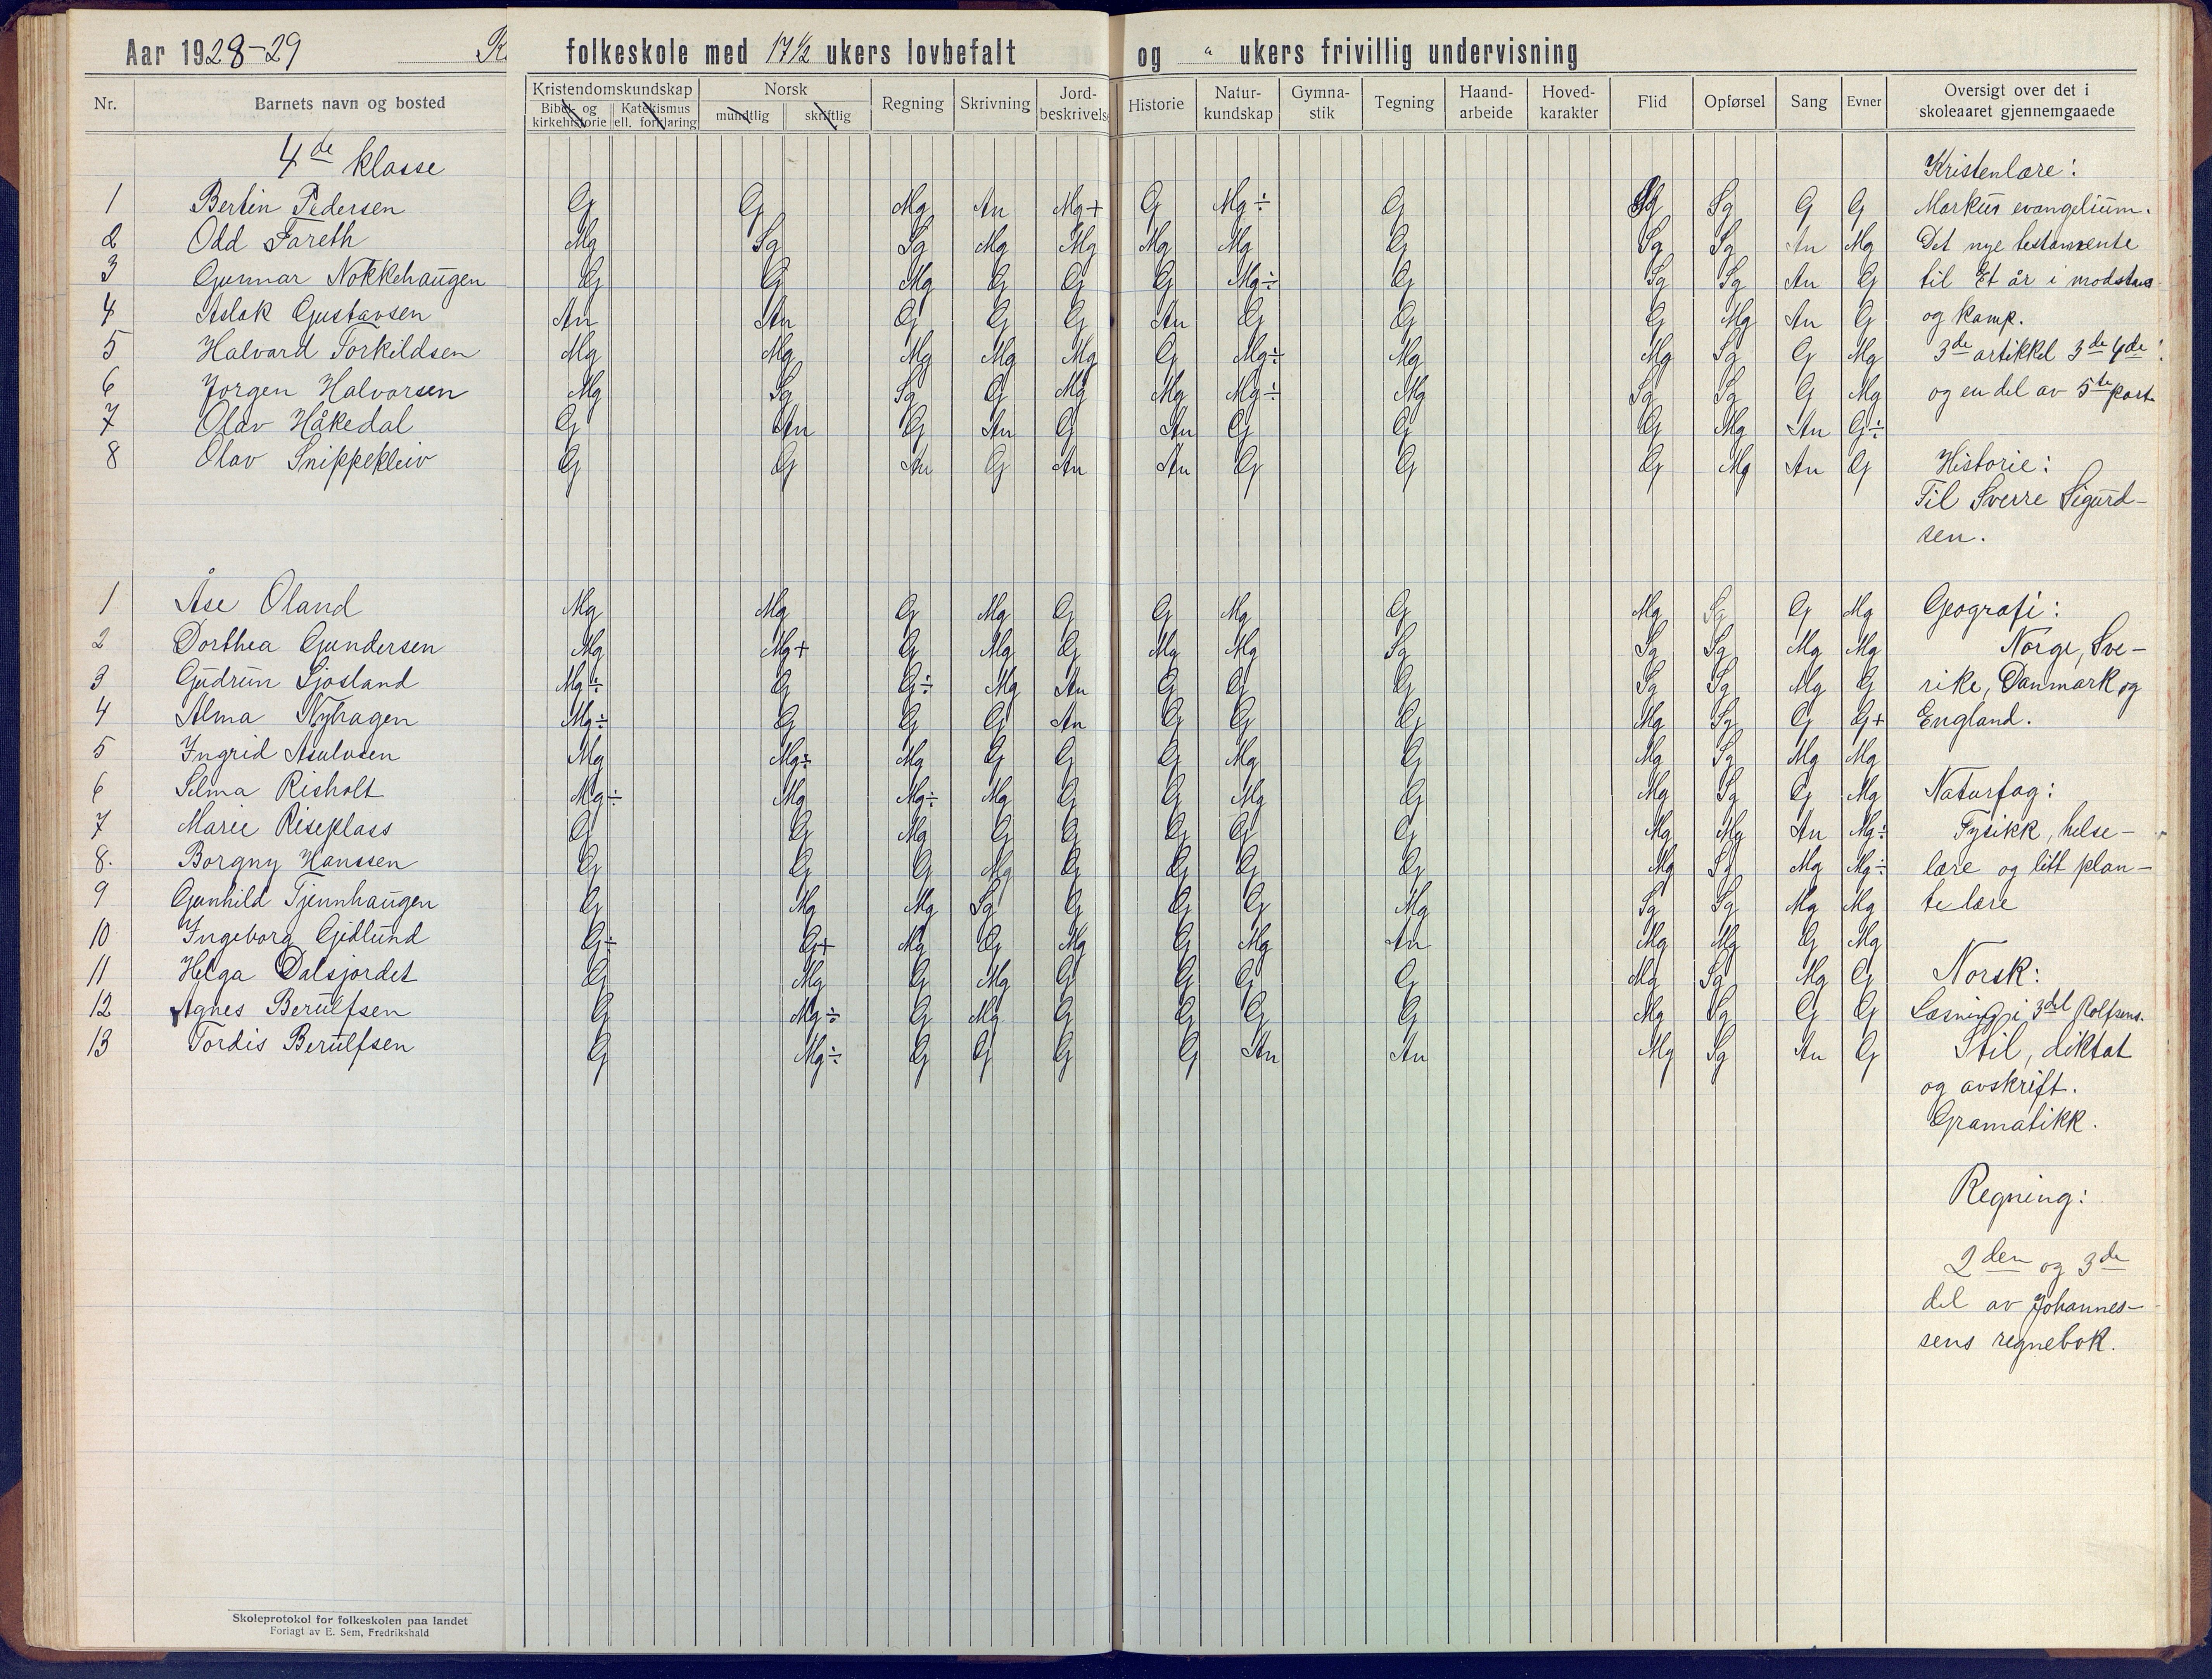 Aar 1928-29 folkeskole med 17½ ukers lovbefalt og " ukers frivillig undervisning
Nr. Barnets navn og bosted Kristendomskundskap Bibel- og kirkehistorie Katekismus ell. forklaring Norsk mundtlig skriftlig Regning Skrivning Jord-beskrivels Historie Natur-kundskap Gymna-stik Tegning Haand-arbeide Hoved-karakter Flid Opførsel Sang Evner Oversigt over det i skoleaaret gjennemgaaede
4de klasse
1 Bertin Pedersen G G Mg An Mg+ G Mg÷ G Sg Sg G G
2 Odd Fareth Mg Sg Sg Mg Mg Mg Mg G Sg Sg An Mg
3 Gunnar Nokkehaugen G G Mg G G G Mg÷ G Sg Sg An G
4 Aslak Gustavsen An An G G G An G G G Mg An G
5 Halvard Torkildsen Mg Mg Mg Mg Mg G Mg÷ Mg Mg Sg G Mg
6 Jorgen Halvorsen Mg Sg Sg G Mg Mg Mg÷ Mg Sg Sg G Mg
7 Olav Håkedal G An G An G An G G G Mg An G÷
8 Olav Snippekleiv G G An G An An G G G Mg An G
1 Åse Oland Mg Mg G Mg G G Mg G Mg Sg G Mg
2 Dorthea Gundersen Mg Mg+ G Mg G Mg Mg Sg Sg Sg Mg Mg
3 Gudrun Sjosland Mg÷ G G÷ Mg An G G G Sg Sg Mg G
4 Alma Nyhagen Mg÷ G G G An G G G Mg Sg G G+
5 Ingrid Asulvsen Mg Mg÷ Mg G G G Mg G Mg Sg Mg Mg
6 Selma Risholt Mg÷ Mg Mg÷ Mg G G Mg G Mg Sg G Mg
7 Marie Riseplass G G Mg G G G G G Mg Mg An Mg÷
8. Borgny Hanssen G G G Mg G G G G Mg Sg Mg Mg÷
9 Gunhild Tjennhaugen G Mg Mg Sg G G G Mg Sg Sg Mg Mg
10 Ingeborg Gjidlund G÷ G+ Mg G Mg G Mg An Mg Mg G Mg
11 Helga Dalsjordet G Mg G Mg G G G G Mg Sg Mg G
12 Agnes Berulfsen G Mg÷ G Mg G G G G Mg Sg G G
13 Tordis Berulfsen G Mg÷ G G G G An An Mg Sg An G
Kristenlære:
Markus evangelium.
Det nye testamente
til Et år i modstan
og kamp.
3de artikkel 3de 4de
og en del av 5te part
Historie:
Til Sverre Sigurd-
sen.
Geografi:
Norge, Sve-
rike, Danmark og
England.
Naturfag:
Fysikk, helse-
lære og litt plan-
telære
Norsk:
Læsning i 3del Rolfsens.
Stil, diktat
og avskrift.
Gramatikk.
Regning:
2den og 3de
del av Johannes-
sens regnebok.
Skoleprotokol for folkeskolen paa landet
Forlagt av E. Sem, Fredrikshald